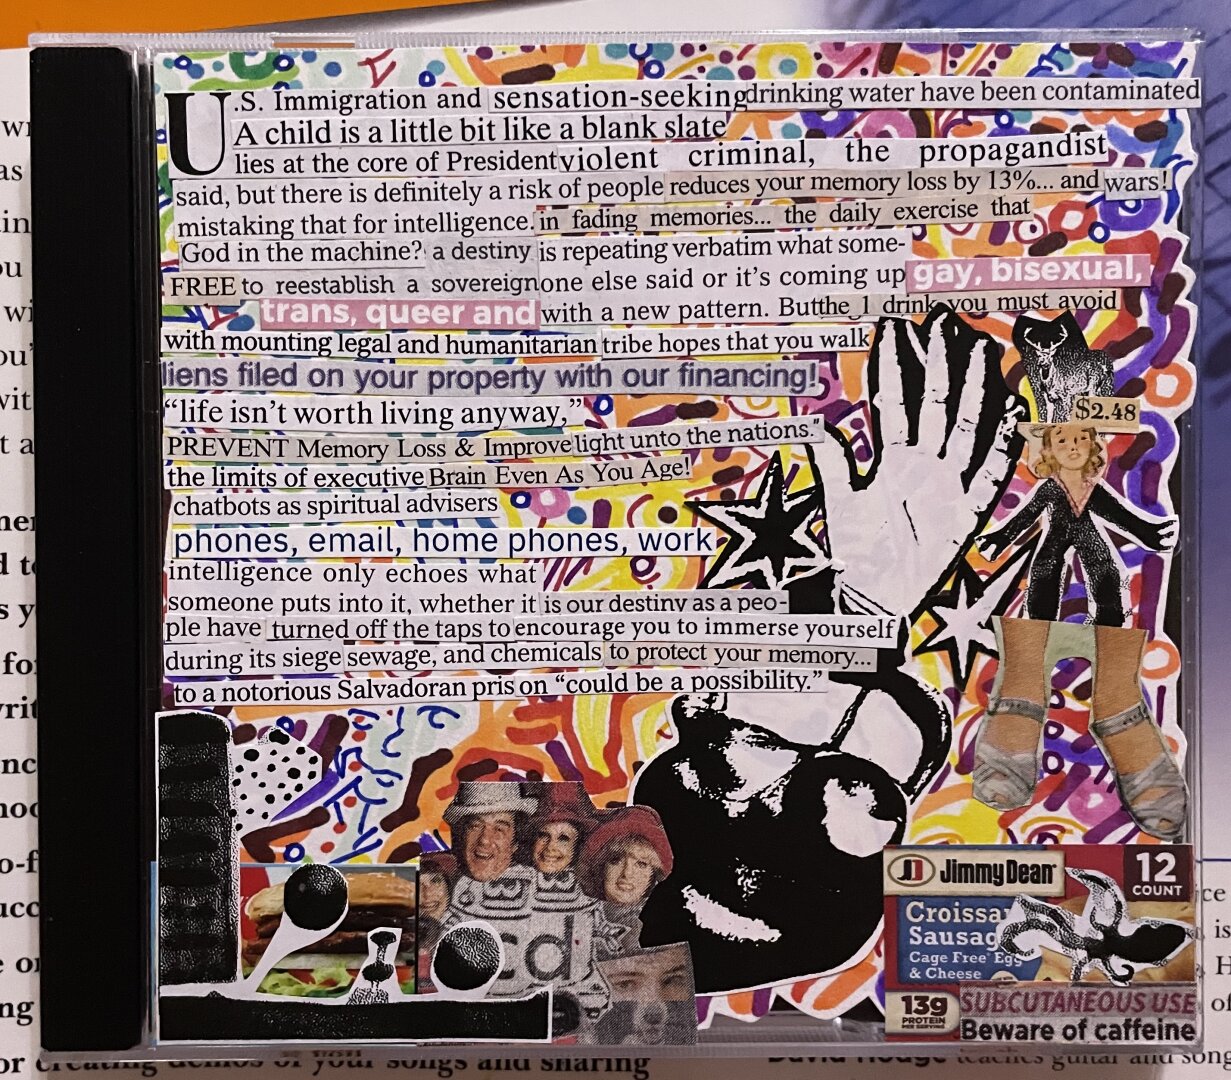 U.S. Immigration and sensation-seeking drinking water have been contaminated
A child is a little bit like a blank slate
lies at the core of President violent criminal, the propagandist
said, but there is definitely a risk of people reduces your memory loss by 13%... and wars!
mistaking that for intelligence. in fading memories... the daily exercise that
God in the machine? a destiny is repeating verbatim what some-
FREE to reestablish a sovereign one else said or it's coming up gay, bisexual,
trans, queer and with a new pattern. But the 1 drink you must avoid
with mounting legal and humanitarian tribe hopes that you walk
liens filed on your property with our financing!
"life isn't worth living anyway,"
PREVENT Memory Loss & Improve light unto the nations."
the limits of executive Brain Even As You Age!
chatbots as spiritual advisers
phones, email, home phones, work
intelligence only echoes what
someone puts into it, whether it is our destiny as a peo-
ple have turned off the taps to encourage you to immerse yourself
during its siege sewage, and chemicals to protect your memory...
to a notorious Salvadoran prison "could be a possibility."
$2.48
cd
JD Jimmy Dean
12
COUNT
Croissa
Sausag
Cage Free Egg
& Cheese
13g
PROTEIN
PER SERVING
SUBCUTANEOUS USE
Beware of caffeine
or creating demos of your songs and sharing
David Hodge teaches guitar and song